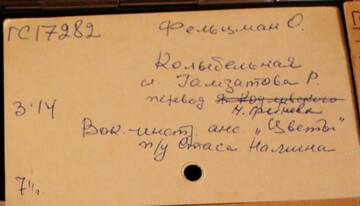 ГС17282 Фельцман О.
Колыбельная
сл Гамзатова Р.
перевод Я. Козловского
Н. Гребнева
3:14
Вок-инстр анс „Цветы"
п/у Стаса Намина